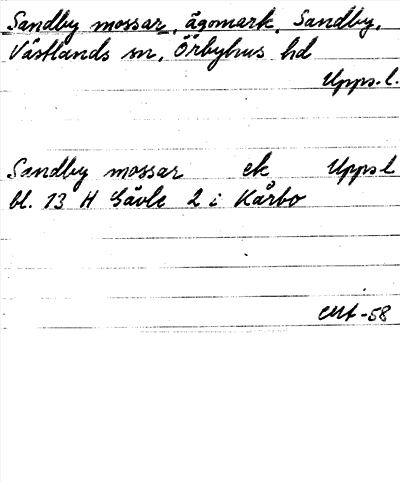 Sandby mossar, ägomark, Sandby,
Västlands sn, Örbyhus hd
Upps. l.
Sandby mossar ek Upps l
bl. 13 H Gävle 2 i Kårbo
-58